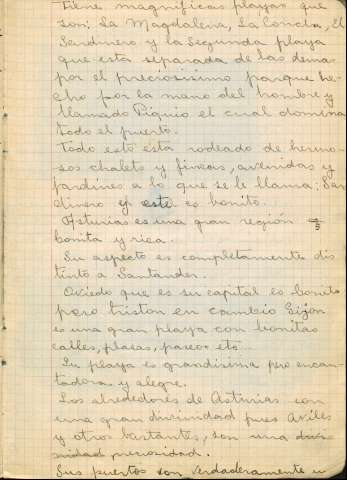 Tiene magnificas playas que
son: La Magdalena, La Concha, El
Sardinero y la Segunda playa
que esta separada de las demas
por el preciosisimo parque he-
cho por la mano del hombre y
llamado Piquio el cual domina
todo el puerto.
Todo esto esta rodeado de hermo-
sos chalets y fincas, avenidas y
jardines a lo que se le llama: Sar
dinero y este es bonito.
Asturias es una gran región
bonita y rica.
Su aspecto es completamente dis
tinto a Santander.
Oviedo que es su capital es bonito
pero triston en cambio Gijon
es una gran playa con bonitas
calles, plazas, paseos etc
Su playa es grandisima pero encan-
tadora y alegre.
Los alrededores de Asturias son
una gran divinidad pues Aviles
y otros bastantes, son una divi-
nidad preciosidad.
Sus puertos son verdaderamente u